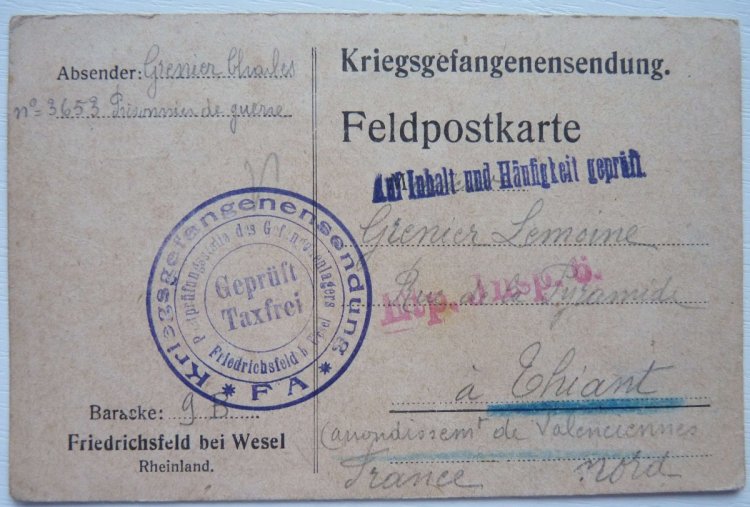 Absender: Grenier Charles
n° 3653 Prisonnier de guerre
Kriegsgefangenensendung.
Feldpostkarte
Auf Inhalt und Häufigkeit geprüft.
Grenier Lemoine
Rue de la Pyramide
Etp. Insp. 6.
à Thiant
(arrondissemt de Valenciennes
France Nord
Kriegsgefangenensendung
Postprüfungsstelle des Gefangenenlagers
Geprüft
Taxfrei
Friedrichsfeld b. Wesel
* F A *
Baracke: 9 B
Friedrichsfeld bei Wesel
Rheinland.